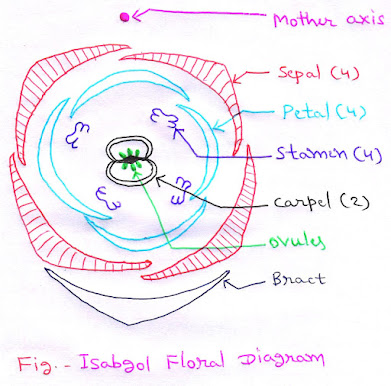 Mother axis
Sepal (4)
Petal (4)
Stamen (4)
Carpel (2)
ovules
Bract
Fig. - Isabgol Floral Diagram